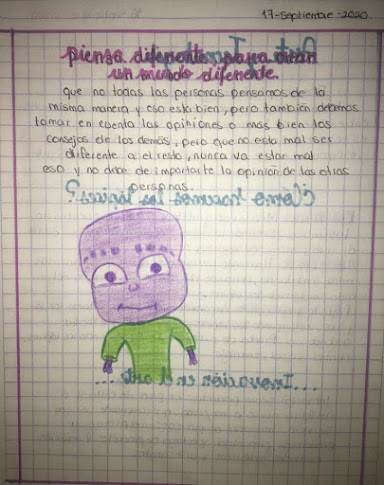 17-septiembre-2020.
piensa diferente para crear
un mundo diferente.
que no todas las personas pensamos de la
misma manera y eso esta bien, pero también debemos
tomar en cuenta las opiniones o mas bien los
consejos de los demás, pero que no esta mal ser
diferente a el resto, nunca va estar mal
eso y no debe de importarte la opinión de las otras
personas.
¿Cómo hacemos los lápices?
...Inovación en el arte...